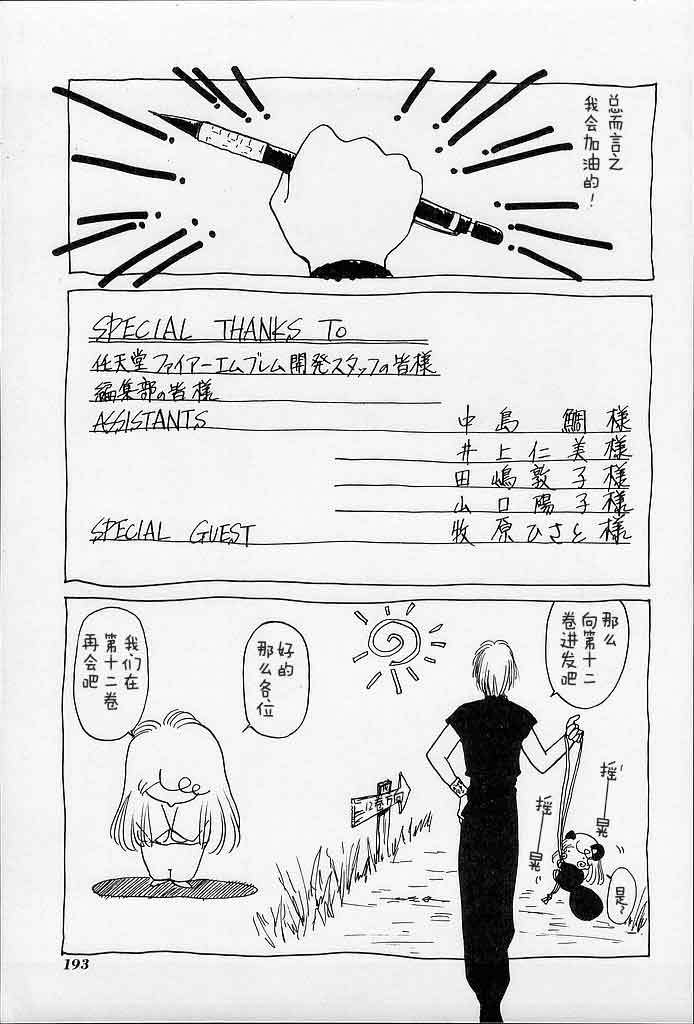 总而言之
我会加油的！
SPECIAL THANKS TO
任天堂ファイアーエムブレム開発スタッフの皆様
編集部の皆様
ASSISTANTS
中島 鯛様
井上仁美様
田嶋敦子様
山口陽子様
SPECIAL GUEST
牧原ひさと様
那么
向第十二
卷进发吧
摇
晃
摇
晃
是～
12巻方向
好的
那么各位
我们在
第十二卷
再会吧
193